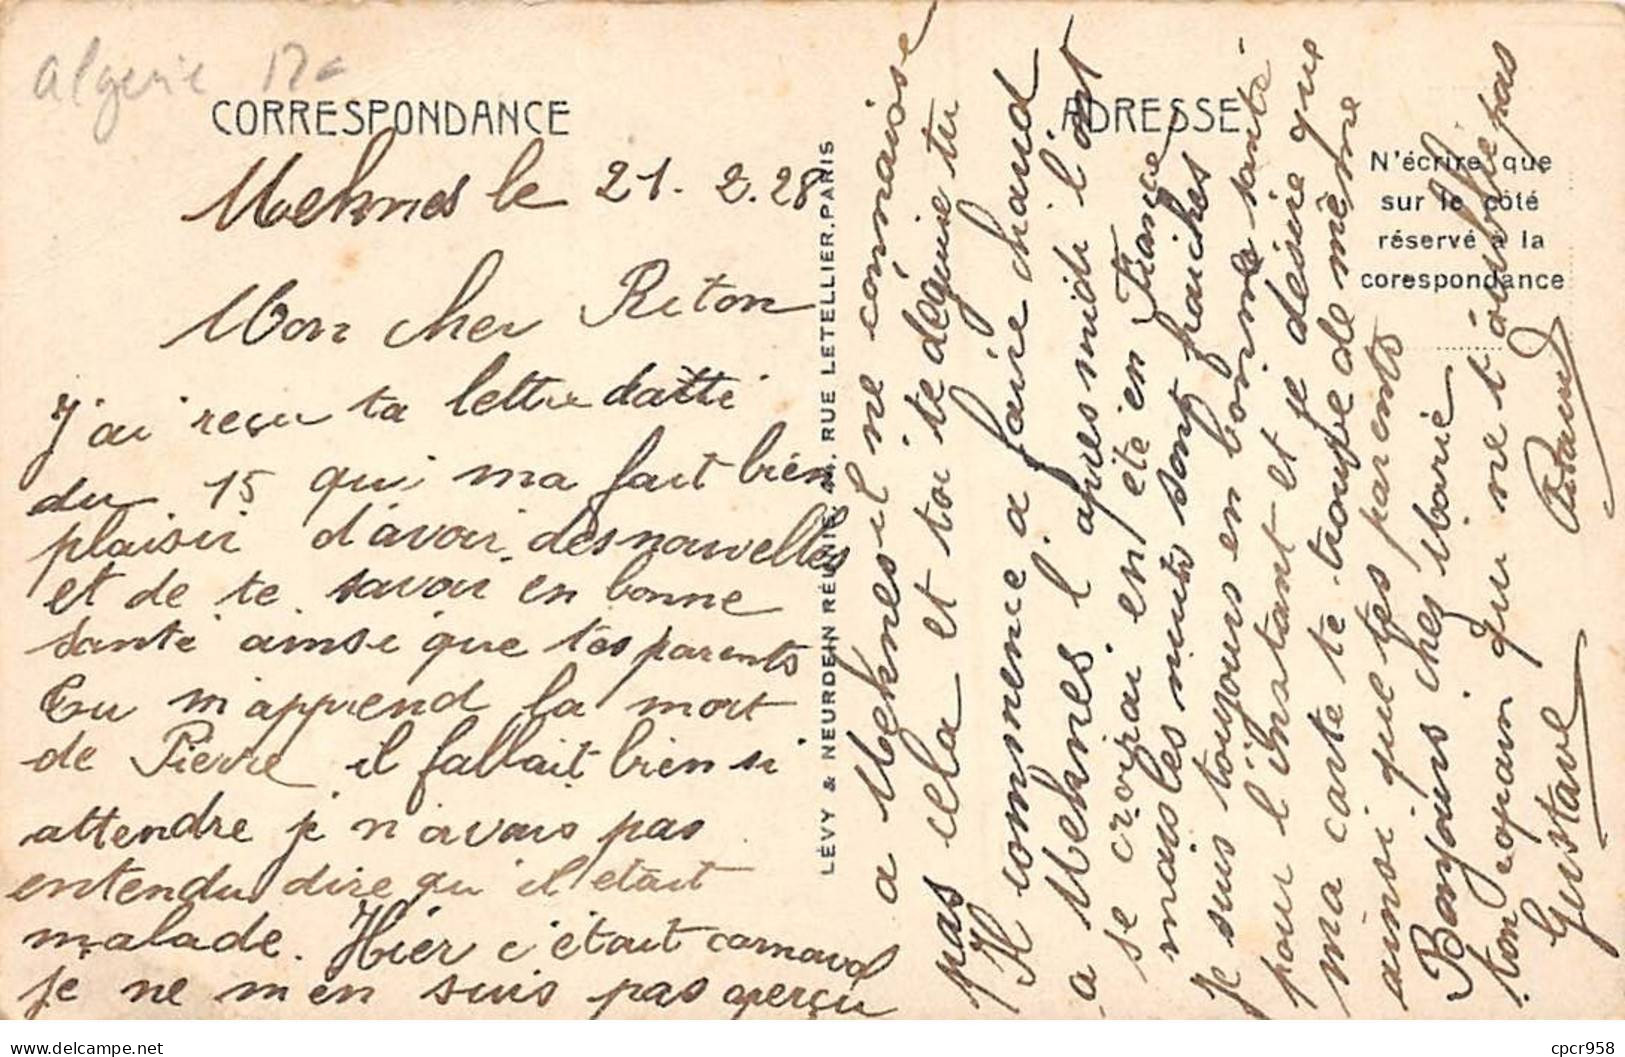 Algerie 12e
CORRESPONDANCE
Meknes le 21. 2. 28
Mon cher Riton
J'ai reçu ta lettre datté
du 15 qui ma fait bien
plaisir d'avoir des nouvelles
et de te savoir en bonne
santé ainsi que tes parents
Tu m'apprend la mort
de Pierre il fallait bien si
attendre je n'avais pas
entendu dire qu'il était
malade. Hier c'était carnaval
je ne m'en suis pas aperçu
LÉVY & NEURDEIN RÉUNIS, 44, RUE LETELLIER, PARIS
ADRESSE
N'écrire que
sur le côté
réservé à la
corespondance
a Meknes il ne connaisse
pas cela et toi te déguise tu
Il commence a faire chaud
a Meknes l'apres midi l'ont
se croirai en été en France
mais les nuits sont fraiches
Je suis toujours en bonne santé
pour l'instant et je désire que
ma carte te trouve de même
ainsi que tes parents
Bonjours chez Marie
ton copain qui ne t'oublie pas
Gustave
cpcr958